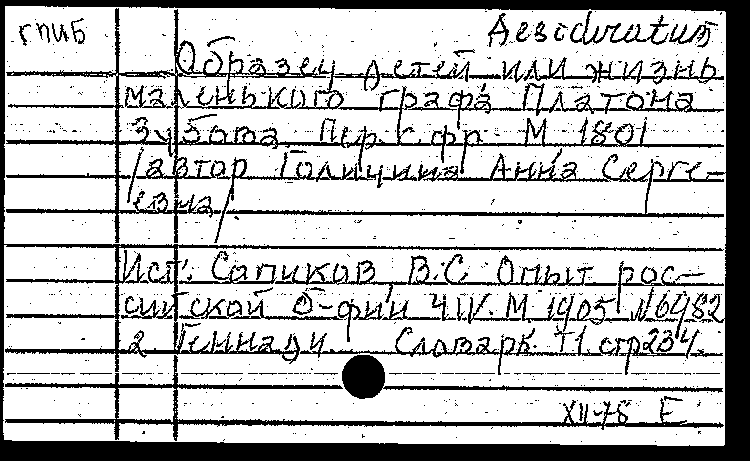 гпиб
Desiduratum
Образец детей или жизнь
маленького графа Платона
Зубова. Пер. с фр. М. 1801
/автор Голицина Анна Серге-
евна/
Ист.: Сопиков, В.С. Опыт рос-
сийской б-фии ч IV. М. 1905 №6982
2 Геннади. Словарь. Т1. стр234.
XII-78 Е